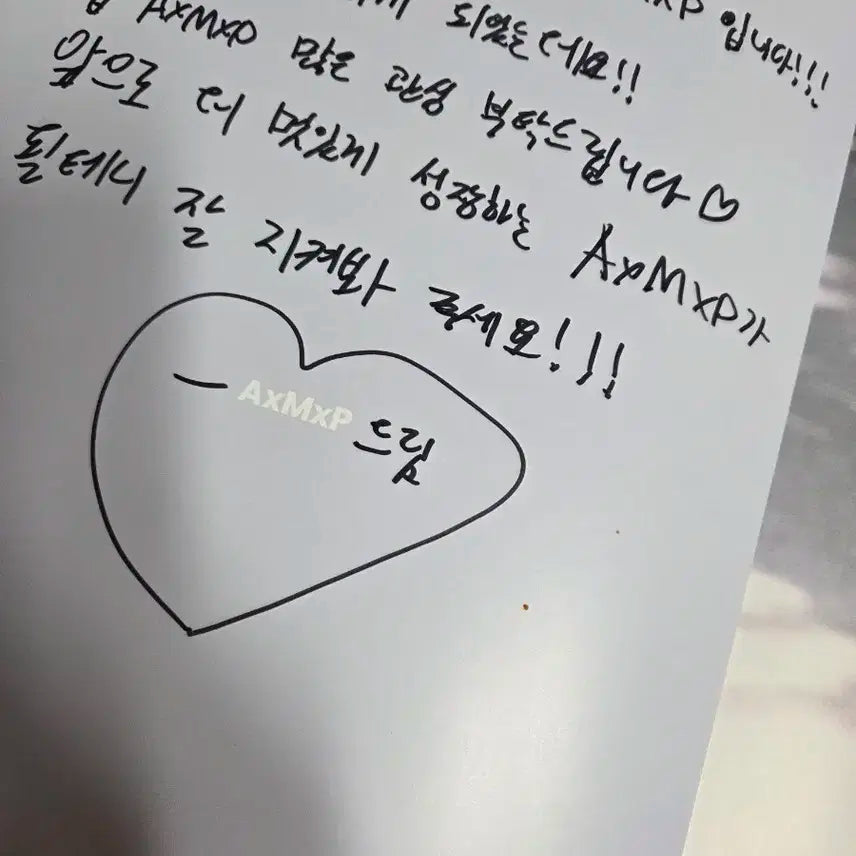 입니다!!!
되었는데요!!
AxMxP 많은 관심 부탁드립니다♡
앞으로 더 멋있게 성장하는 AxMxP가
될테니 잘 지켜봐 주세요!!!
— AxMxP 드림